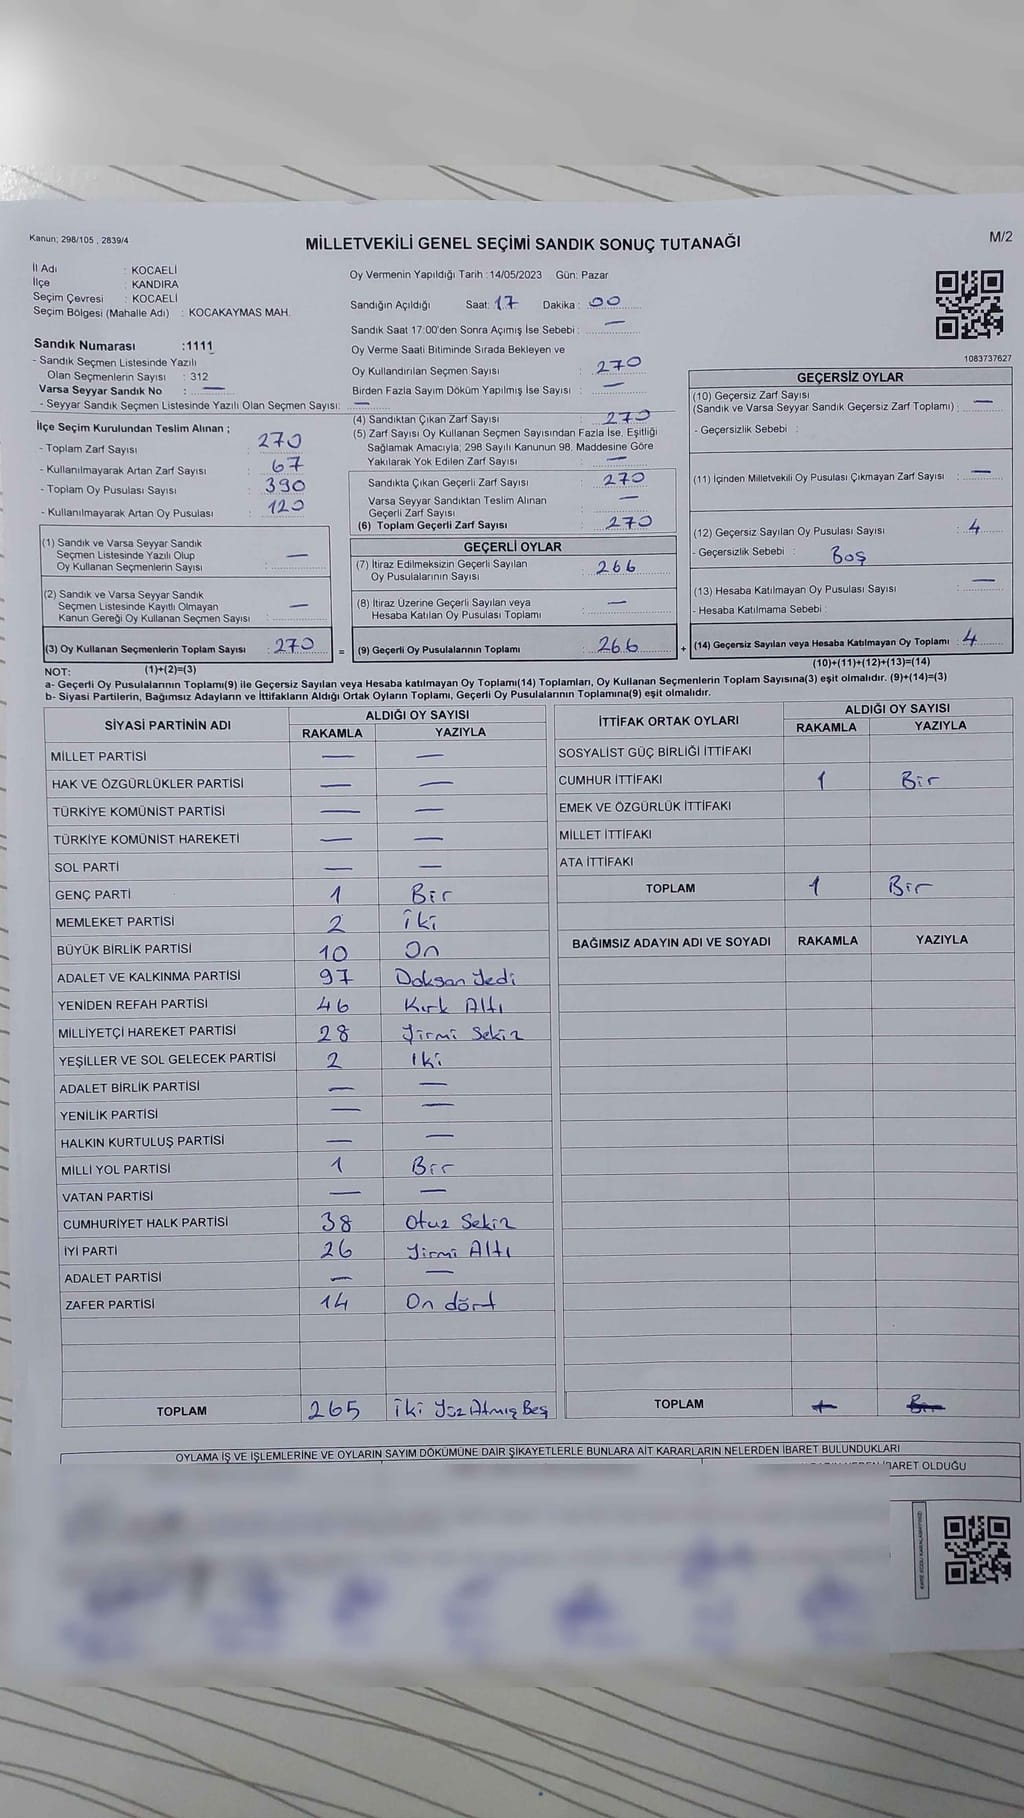 Kanun; 298/105 , 2839/4
MİLLETVEKİLİ GENEL SEÇİMİ SANDIK SONUÇ TUTANAĞI
M/2
İl Adı : KOCAELİ
İlçe : KANDIRA
Seçim Çevresi : KOCAELİ
Seçim Bölgesi (Mahalle Adı) : KOCAKAYMAS MAH.
Sandık Numarası :1111
- Sandık Seçmen Listesinde Yazılı
Olan Seçmenlerin Sayısı : 312
Varsa Seyyar Sandık No : —
- Seyyar Sandık Seçmen Listesinde Yazılı Olan Seçmen Sayısı: —
Oy Vermenin Yapıldığı Tarih :14/05/2023 Gün: Pazar
Sandığın Açıldığı Saat: 17 Dakika : 00
Sandık Saat 17:00'den Sonra Açımış İse Sebebi : —
Oy Verme Saati Bitiminde Sırada Bekleyen ve
Oy Kullandırılan Seçmen Sayısı : 270
Birden Fazla Sayım Döküm Yapılmış İse Sayısı : —
1083737627
İlçe Seçim Kurulundan Teslim Alınan ;
- Toplam Zarf Sayısı : 270
- Kullanılmayarak Artan Zarf Sayısı : 67
- Toplam Oy Pusulası Sayısı : 390
- Kullanılmayarak Artan Oy Pusulası : 120
(1) Sandık ve Varsa Seyyar Sandık
Seçmen Listesinde Yazılı Olup
Oy Kullanan Seçmenlerin Sayısı : —
(2) Sandık ve Varsa Seyyar Sandık
Seçmen Listesinde Kayıtlı Olmayan
Kanun Gereği Oy Kullanan Seçmen Sayısı : —
(3) Oy Kullanan Seçmenlerin Toplam Sayısı : 270 =
(4) Sandıktan Çıkan Zarf Sayısı : 270
(5) Zarf Sayısı Oy Kullanan Seçmen Sayısından Fazla İse, Eşitliği
Sağlamak Amacıyla; 298 Sayılı Kanunun 98. Maddesine Göre
Yakılarak Yok Edilen Zarf Sayısı : —
Sandıkta Çıkan Geçerli Zarf Sayısı : 270
Varsa Seyyar Sandıktan Teslim Alınan
Geçerli Zarf Sayısı : —
(6) Toplam Geçerli Zarf Sayısı : 270
GEÇERLİ OYLAR
(7) İtiraz Edilmeksizin Geçerli Sayılan
Oy Pusulalarının Sayısı : 266
(8) İtiraz Üzerine Geçerli Sayılan veya
Hesaba Katılan Oy Pusulası Toplamı : —
(9) Geçerli Oy Pusulalarının Toplamı : 266 +
GEÇERSİZ OYLAR
(10) Geçersiz Zarf Sayısı
(Sandık ve Varsa Seyyar Sandık Geçersiz Zarf Toplamı) : —
- Geçersizlik Sebebi :
(11) İçinden Milletvekili Oy Pusulası Çıkmayan Zarf Sayısı : —
(12) Geçersiz Sayılan Oy Pusulası Sayısı : 4
- Geçersizlik Sebebi : Boş
(13) Hesaba Katılmayan Oy Pusulası Sayısı : —
- Hesaba Katılmama Sebebi :
(14) Geçersiz Sayılan veya Hesaba Katılmayan Oy Toplamı : 4
NOT: (1)+(2)=(3)
(10)+(11)+(12)+(13)=(14)
a- Geçerli Oy Pusulalarının Toplamı(9) ile Geçersiz Sayılan veya Hesaba katılmayan Oy Toplamı(14) Toplamları, Oy Kullanan Seçmenlerin Toplam Sayısına(3) eşit olmalıdır. (9)+(14)=(3)
b- Siyasi Partilerin, Bağımsız Adayların ve İttifakların Aldığı Ortak Oyların Toplamı, Geçerli Oy Pusulalarının Toplamına(9) eşit olmalıdır.
SİYASİ PARTİNİN ADI ALDIĞI OY SAYISI
RAKAMLA YAZIYLA
MİLLET PARTİSİ — —
HAK VE ÖZGÜRLÜKLER PARTİSİ — —
TÜRKİYE KOMÜNİST PARTİSİ — —
TÜRKİYE KOMÜNİST HAREKETİ — —
SOL PARTİ — —
GENÇ PARTİ 1 Bir
MEMLEKET PARTİSİ 2 İki
BÜYÜK BİRLİK PARTİSİ 10 On
ADALET VE KALKINMA PARTİSİ 97 Doksan Yedi
YENİDEN REFAH PARTİSİ 46 Kırk Altı
MİLLİYETÇİ HAREKET PARTİSİ 28 Yirmi Sekiz
YEŞİLLER VE SOL GELECEK PARTİSİ 2 İki
ADALET BİRLİK PARTİSİ — —
YENİLİK PARTİSİ — —
HALKIN KURTULUŞ PARTİSİ — —
MİLLİ YOL PARTİSİ 1 Bir
VATAN PARTİSİ — —
CUMHURİYET HALK PARTİSİ 38 Otuz Sekiz
İYİ PARTİ 26 Yirmi Altı
ADALET PARTİSİ — —
ZAFER PARTİSİ 14 On dört
TOPLAM 265 İki Yüz Atmış Beş
İTTİFAK ORTAK OYLARI ALDIĞI OY SAYISI
RAKAMLA YAZIYLA
SOSYALİST GÜÇ BİRLİĞİ İTTİFAKI
CUMHUR İTTİFAKI 1 Bir
EMEK VE ÖZGÜRLÜK İTTİFAKI
MİLLET İTTİFAKI
ATA İTTİFAKI
TOPLAM 1 Bir
BAĞIMSIZ ADAYIN ADI VE SOYADI RAKAMLA YAZIYLA
TOPLAM 1 Bir
OYLAMA İŞ VE İŞLEMLERİNE VE OYLARIN SAYIM DÖKÜMÜNE DAİR ŞİKAYETLERLE BUNLARA AİT KARARLARIN NELERDEN İBARET BULUNDUKLARI
İBARET OLDUĞU